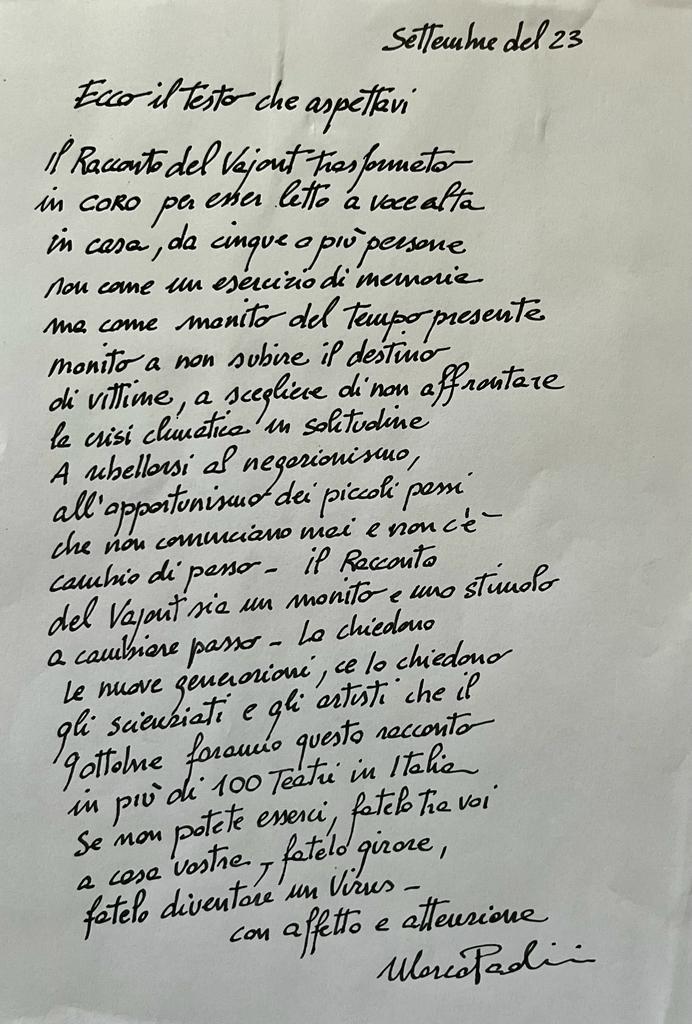 Settembre del 23
Ecco il testo che aspettavi
Il Racconto del Vajont trasformato
in CORO per esser letto a voce alta
in casa, da cinque o più persone
non come un esercizio di memoria
ma come monito del tempo presente
monito a non subire il destino
di vittime, a scegliere di non affrontare
la crisi climatica in solitudine
A ribellarsi al negazionismo,
all'opportunismo dei piccoli passi
che non cominciano mai e non c'è
cambio di passo - il Racconto
del Vajont sia un monito e uno stimolo
a cambiare passo - Lo chiedono
le nuove generazioni, ce lo chiedono
gli scienziati e gli artisti che il
9 ottobre faranno questo racconto
in più di 100 Teatri in Italia
Se non potete esserci, fatelo tra voi
a casa vostra, fatelo girare,
fatelo diventare un Virus -
con affetto e attenzione
Marco Paolini